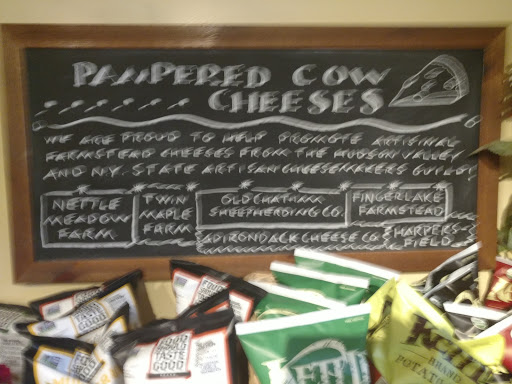 PAMPERED COW
CHEESES
WE ARE PROUD TO HELP PROMOTE ARTISINAL
FARMSTEAD CHEESES FROM THE HUDSON VALLEY
AND N.Y. STATE ARTISAN CHEESEMAKERS GUILD
NETTLE
MEADOW
FARM
TWIN
MAPLE
FARM
OLD CHATHAM
SHEEPHERDING CO.
FINGERLAKE
FARMSTEAD
ADIRONDACK CHEESE CO.
HARPERS-
FIELD
FOOD
SHOULD
TASTE
GOOD
KETTLE
BRAND
POTATO